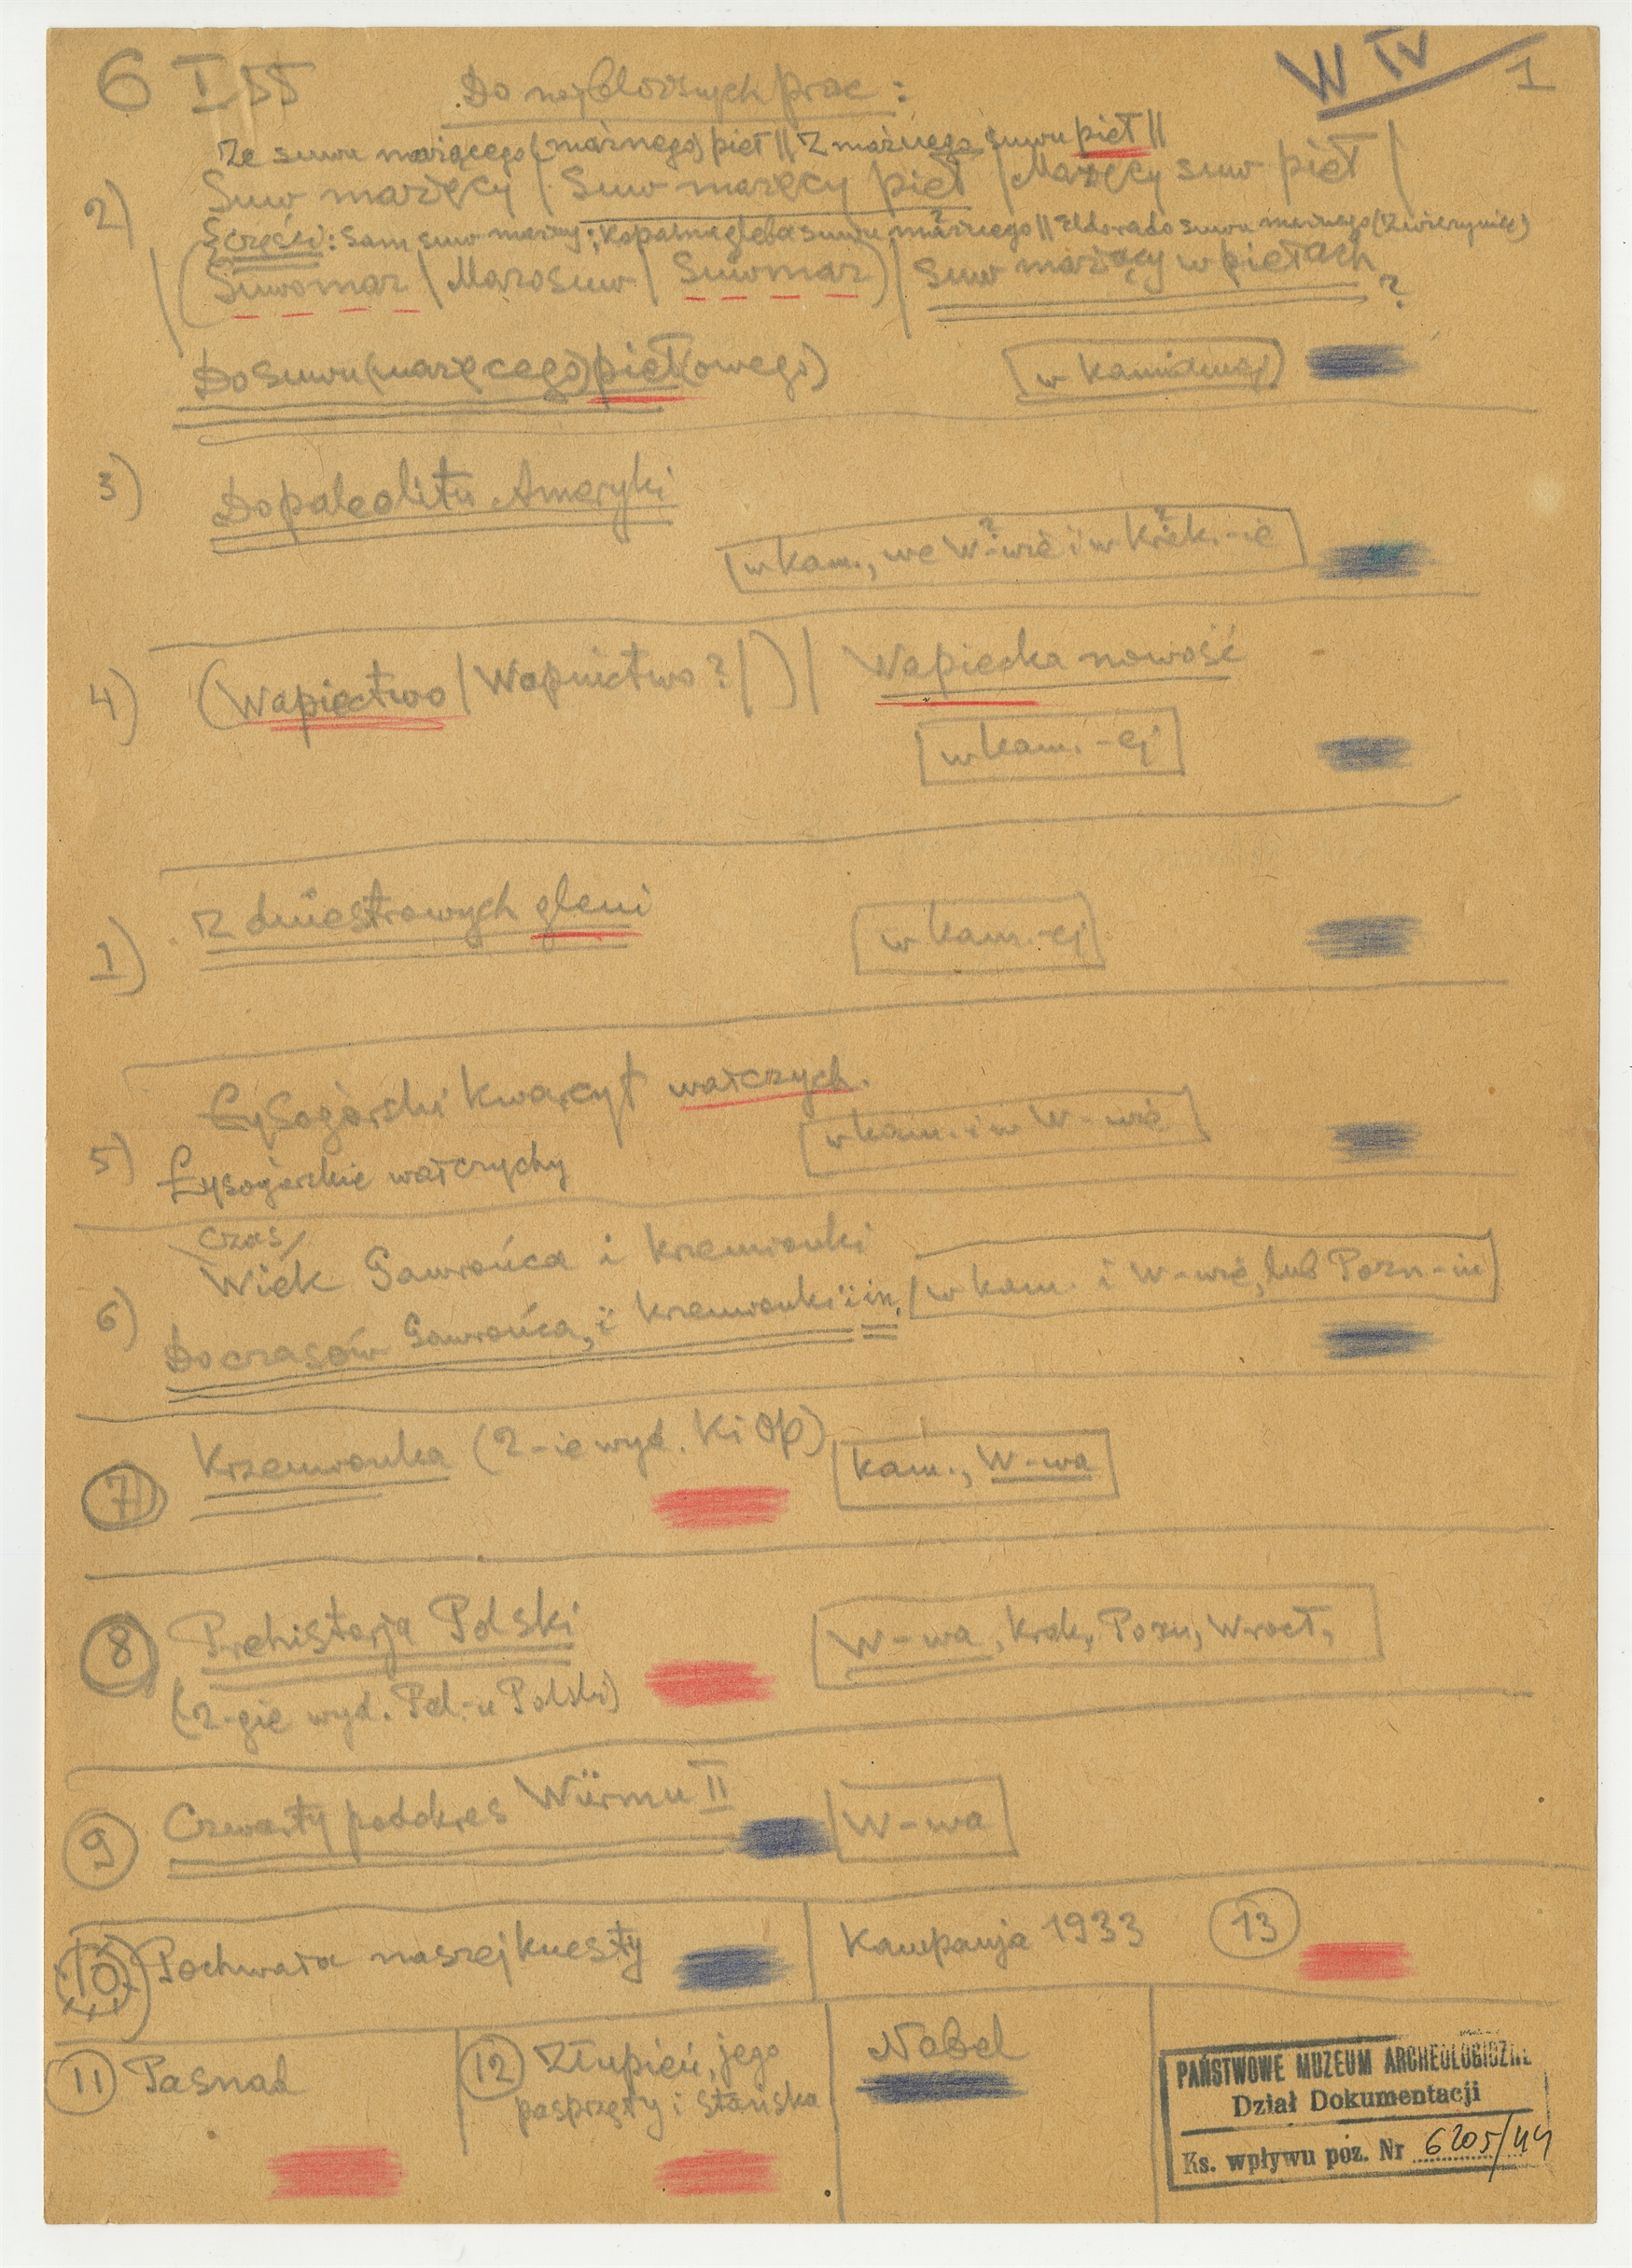 6 I 55 Do najbliższych prac: W IV 1
Ze suwu marzącego (marźnego) pięt || Z marźnego suwu pięt ||
2) Suw marzęcy | Suw marzęcy pięt | Marzęcy suw pięt |
części: Sam suw marzny; Kopalna gleba suwu marznego || Eldorado suwu marznego (Zwierzyniec)
| (Suwomarz | Marosuw | Suwmarz) | Suw marzący w piętach ?
Do suwu (marzęcego) pięt(owego) w kamiennej
3) Do paleolitu Ameryki
w kam., we W-wie i w Krak.-ie
4) (Wapiectwo | Wapnictwo? |) | Wapiecka nowość
w kam.-ej
1) Z dniestrowych gleni w kam.-ej
Łysogórski kwarcyt warczych.
w kam. i w W-wie
5) Łysogórskie warczychy
Czas/
Wiek Gawrońca i krzemionki
w kam. i W-wie, lub Pozn-iu
6) Do czasów Gawrońca, i krzemionki i in.
7) Krzemionka (2-ie wyd. K i Op) kam., W-wa
8) Prehistorja Polski W-wa, Krak, Pozn, Wrocł,
(2-gie wyd. Pal-u Polski)
9) Czwarty podokres Würmu II W-wa
10) Pochwała naszej kuesty Kampanja 1933 13
11) Pasnad 12 Złupień, jego Nobel
pasprzęty i
PAŃSTWOWE MUZEUM ARCHEOLOGICZNE
Dział Dokumentacji
Ks. wpływu poz. Nr 6205/44